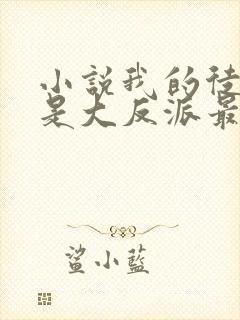 小說我的徒
是大反派最
鯊小藍